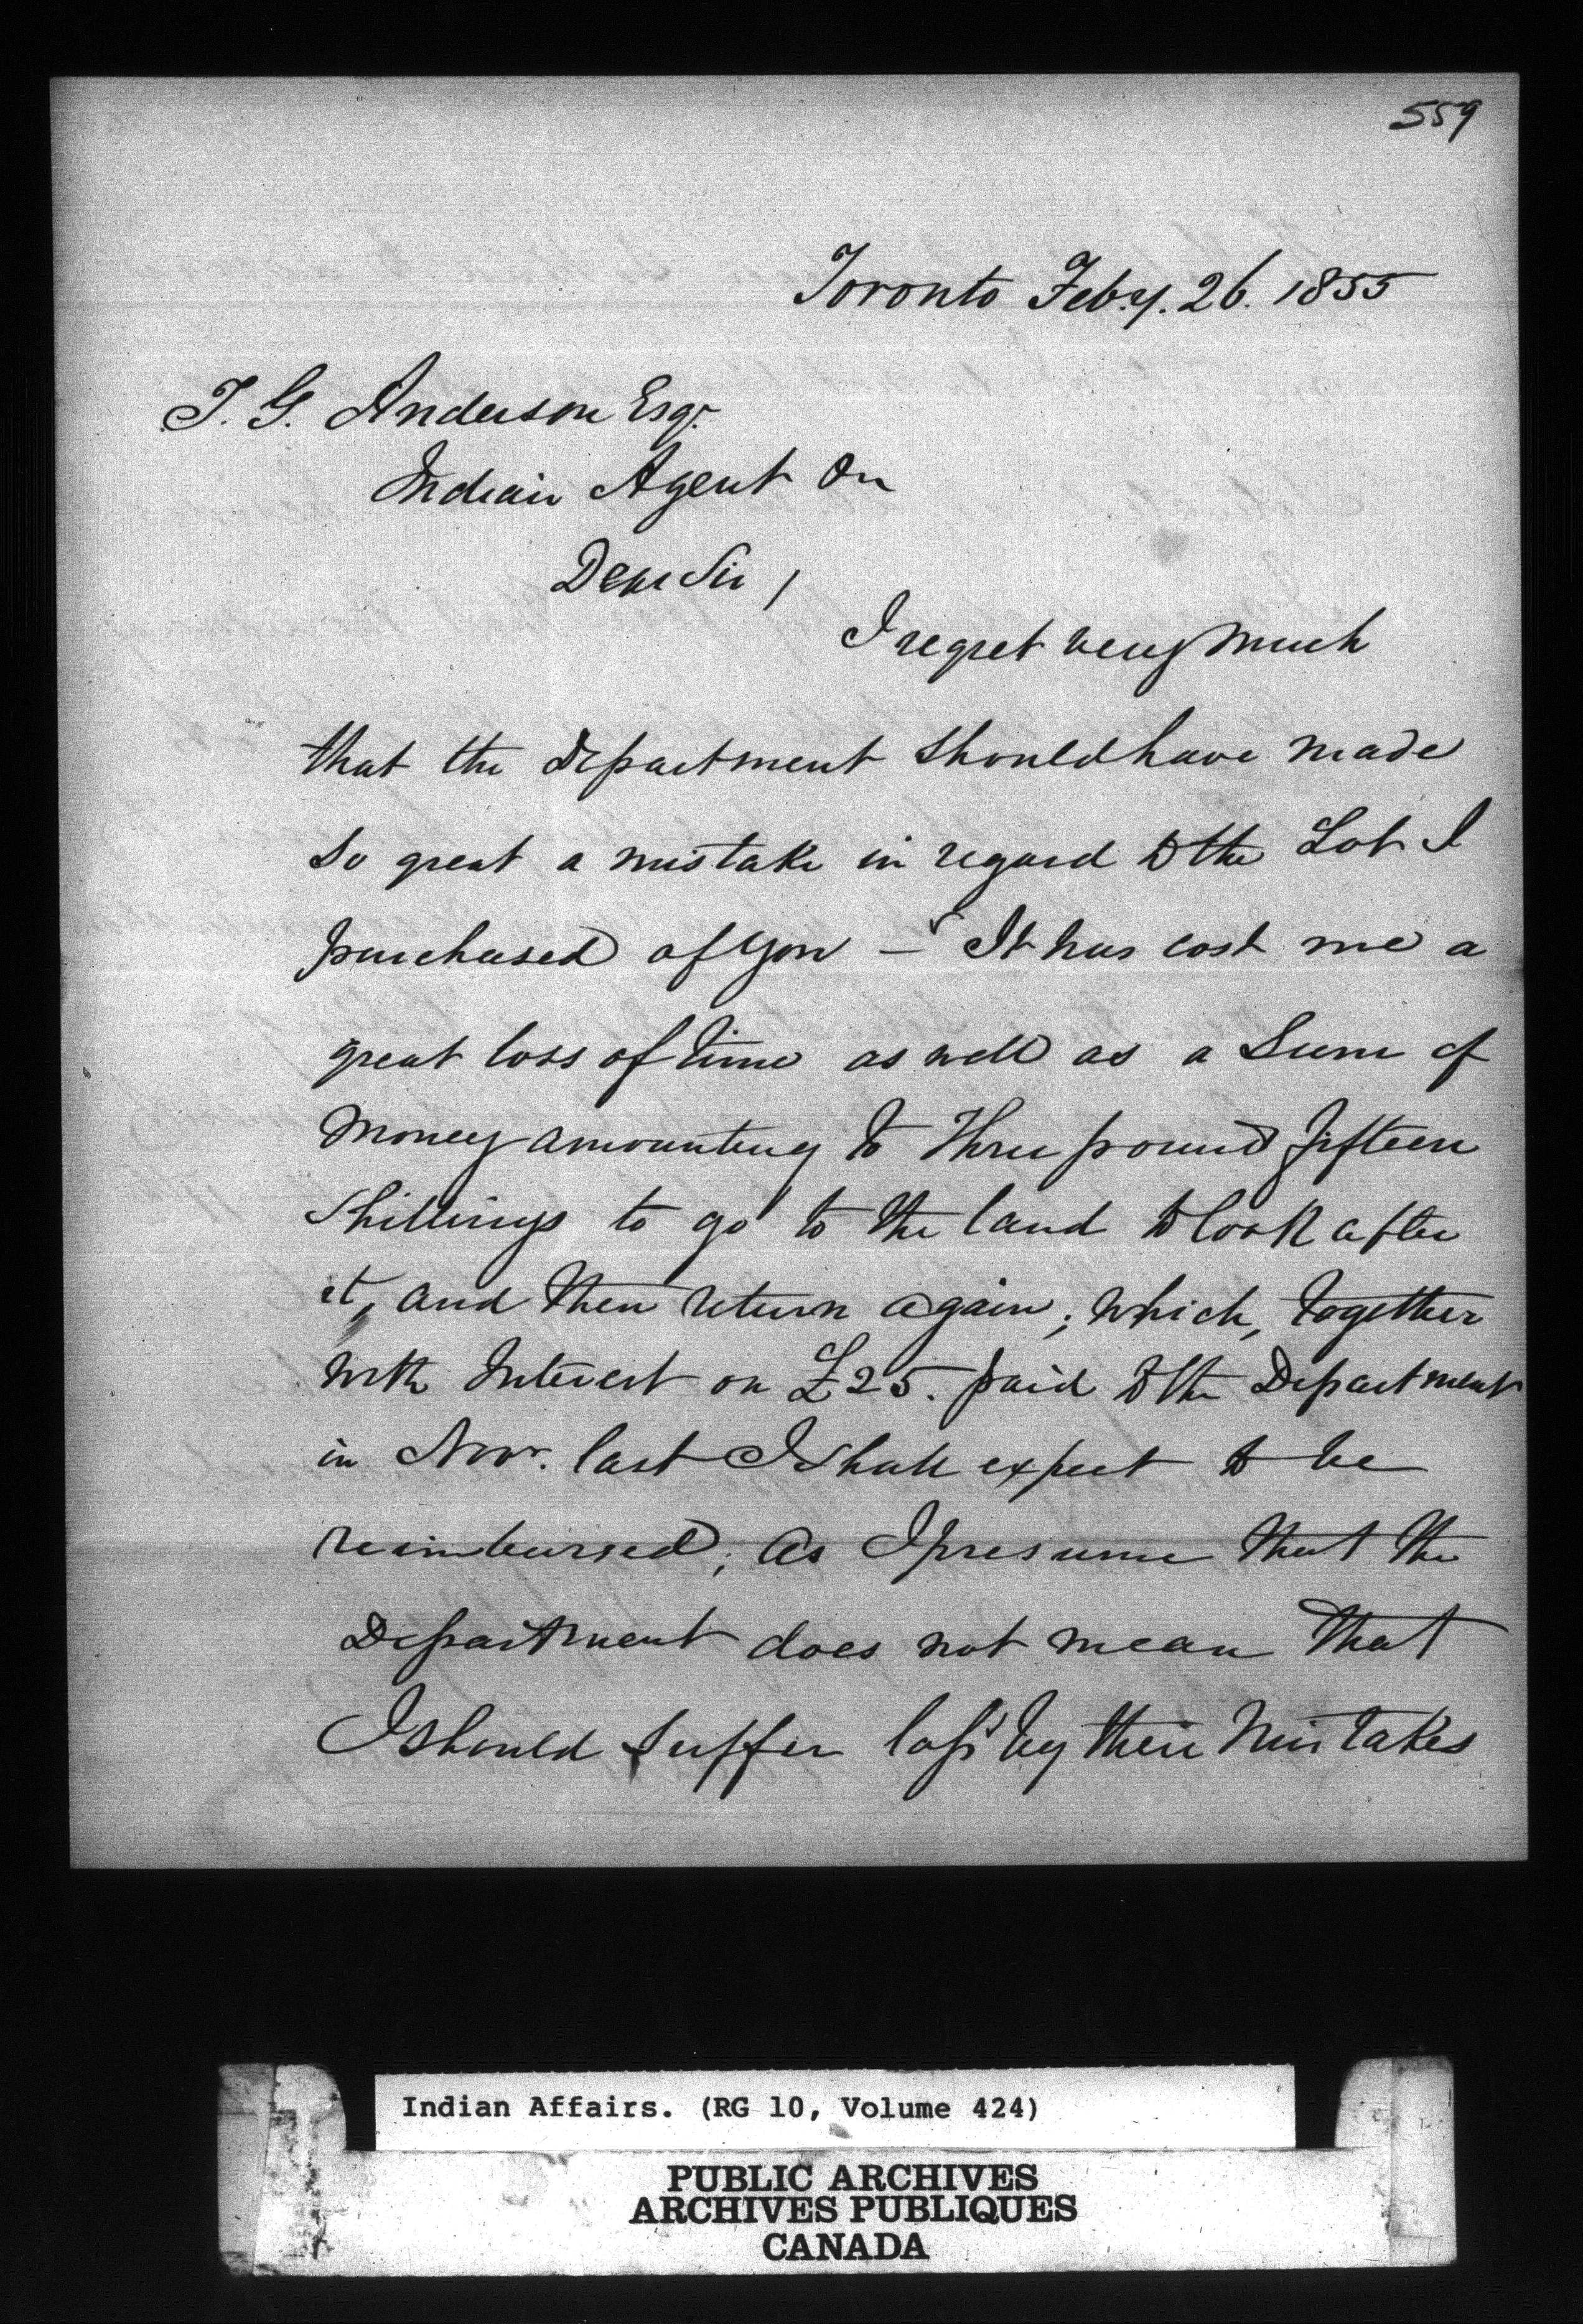 559
Toronto Feby. 26. 1855
T. G. Anderson Esqr.
Indian Agent On
Dear Sir,
I regret very much
that the Department should have made
so great a mistake in regard to the Lot I
purchased of you — It has cost me a
great loss of time as well as a Sum of
Money amounting to Three pound fifteen
Shillings to go to the land to look after
it, and then return again; which, together
with Interest on £25. paid to the Department
in Novr. last I shall expect to be
reimbursed; as I presume that the
Department does not mean that
I should suffer loss by their Mistakes
Indian Affairs. (RG 10, Volume 424)
PUBLIC ARCHIVES
ARCHIVES PUBLIQUES
CANADA